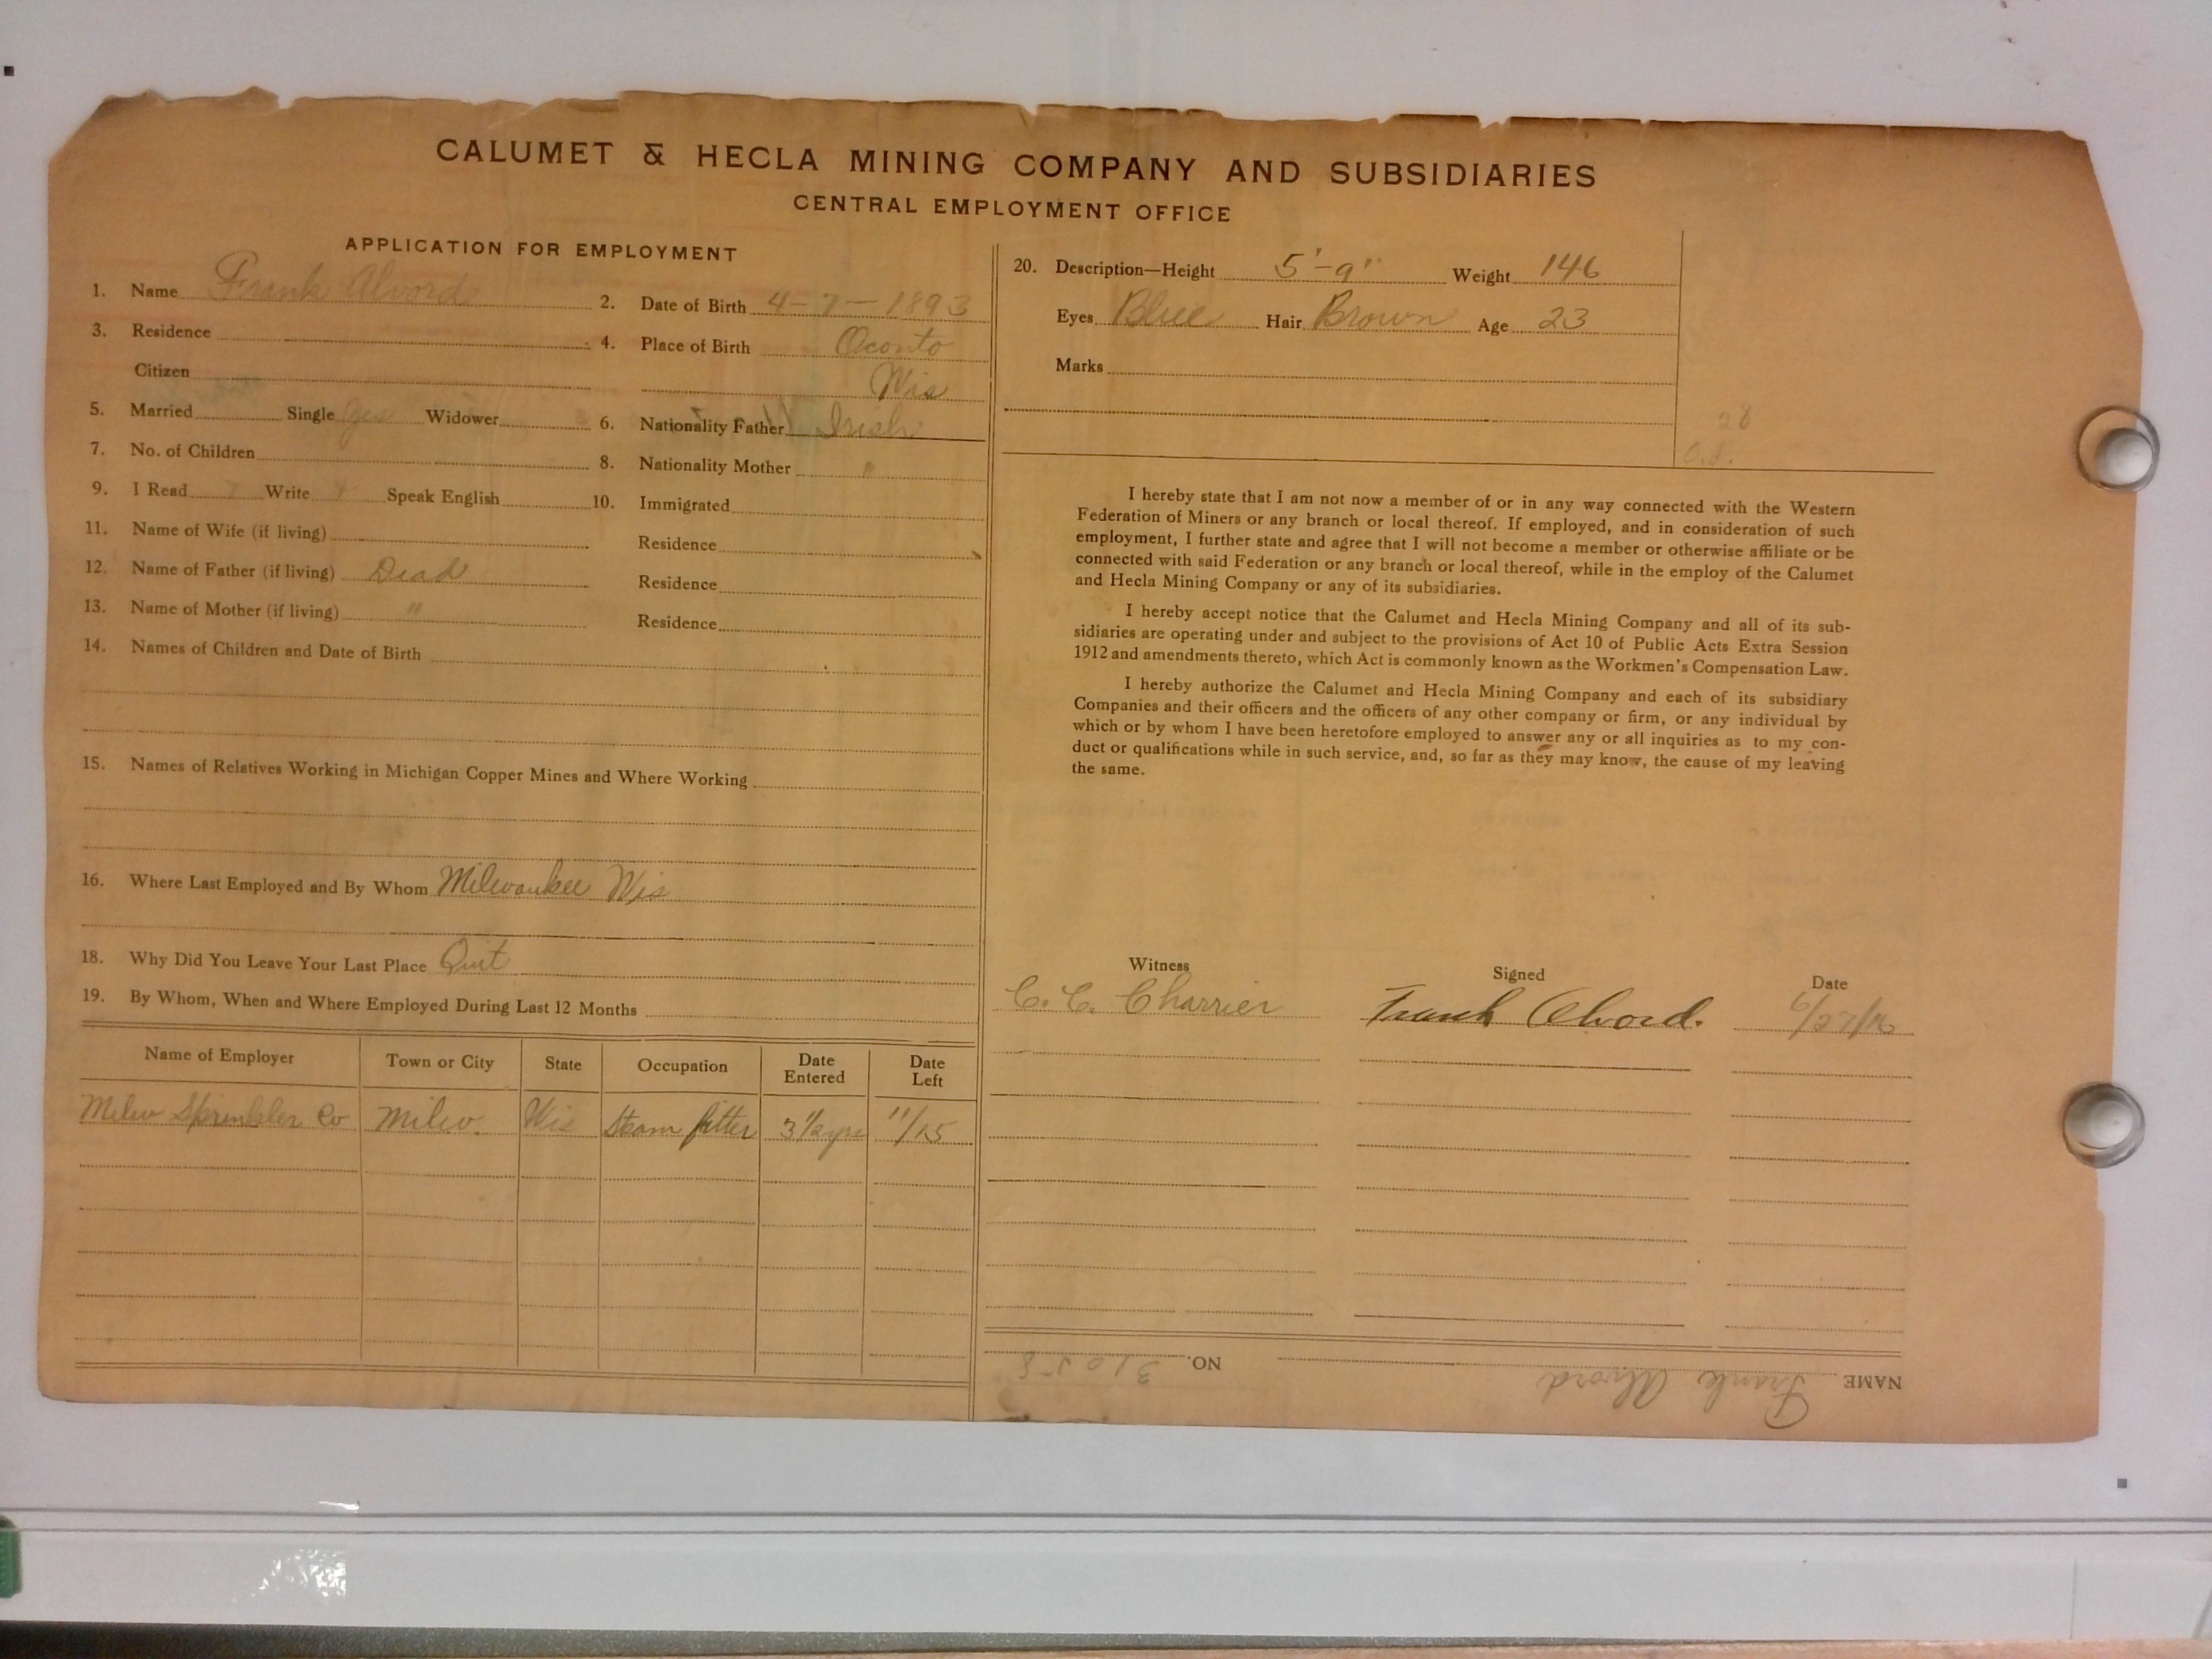 CALUMET & HECLA MINING COMPANY AND SUBSIDIARIES
CENTRAL EMPLOYMENT OFFICE
APPLICATION FOR EMPLOYMENT
1. Name Frank Alvord 2. Date of Birth 4-7-1893
3. Residence 4. Place of Birth Oconto
Citizen Wis
5. Married Single yes Widower 6. Nationality Father Irish
7. No. of Children 8. Nationality Mother "
9. I Read Write Speak English 10. Immigrated
11. Name of Wife (if living) Residence
12. Name of Father (if living) Dead Residence
13. Name of Mother (if living) " Residence
14. Names of Children and Date of Birth
15. Names of Relatives Working in Michigan Copper Mines and Where Working
16. Where Last Employed and By Whom Milwaukee Wis
18. Why Did You Leave Your Last Place Quit
19. By Whom, When and Where Employed During Last 12 Months
Name of Employer Town or City State Occupation Date Entered Date Left
Milw Sprinkler Co Milw. Wis Steam fitter 3 1/2 yrs 11/15
20. Description—Height 5'-9" Weight 146
Eyes Blue Hair Brown Age 23
Marks
28
I hereby state that I am not now a member of or in any way connected with the Western
Federation of Miners or any branch or local thereof. If employed, and in consideration of such
employment, I further state and agree that I will not become a member or otherwise affiliate or be
connected with said Federation or any branch or local thereof, while in the employ of the Calumet
and Hecla Mining Company or any of its subsidiaries.
I hereby accept notice that the Calumet and Hecla Mining Company and all of its sub-
sidiaries are operating under and subject to the provisions of Act 10 of Public Acts Extra Session
1912 and amendments thereto, which Act is commonly known as the Workmen's Compensation Law.
I hereby authorize the Calumet and Hecla Mining Company and each of its subsidiary
Companies and their officers and the officers of any other company or firm, or any individual by
which or by whom I have been heretofore employed to answer any or all inquiries as to my con-
duct or qualifications while in such service, and, so far as they may know, the cause of my leaving
the same.
Witness Signed Date
C. C. Charrier Frank Alvord. 6/27/16
NAME Frank Alvord NO. 31058